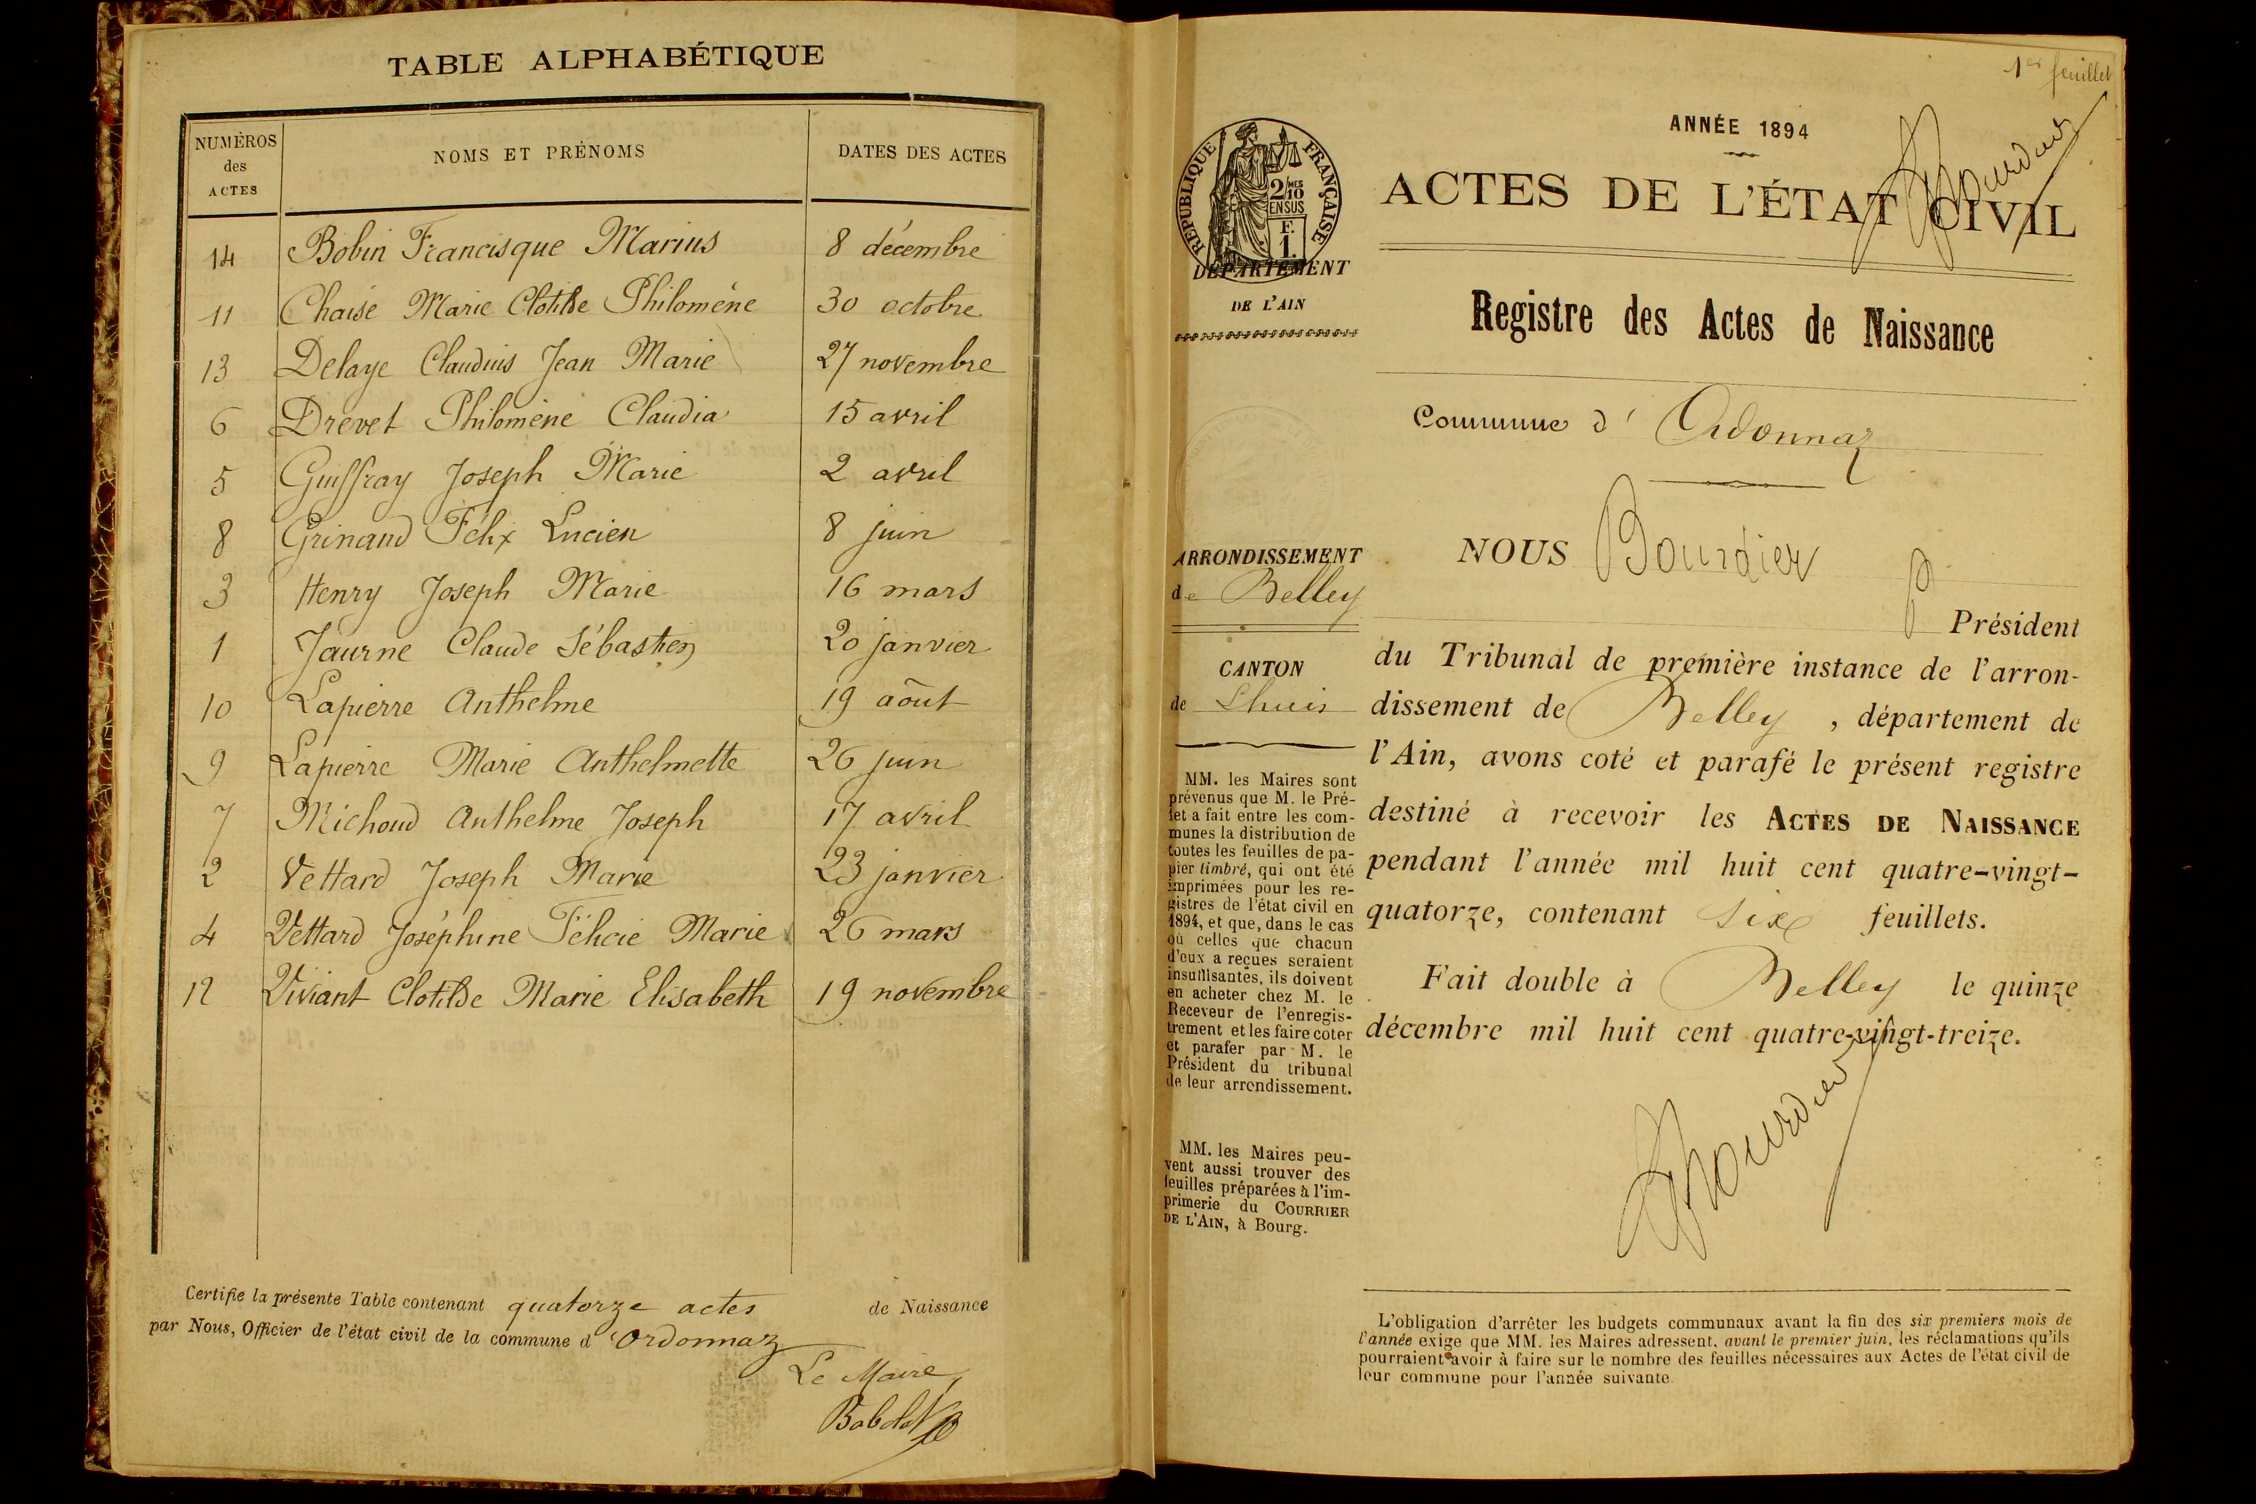 TABLE ALPHABÉTIQUE
NUMÉROS des ACTES NOMS ET PRÉNOMS DATES DES ACTES
14 Bobin Francisque Marius 8 décembre
11 Chaise Marie Clotilde Philomène 30 octobre
13 Delaye Claudius Jean Marie 27 novembre
6 Drevet Philomène Claudia 15 avril
5 Guiffray Joseph Marie 2 avril
8 Grinand Félix Lucien 8 juin
3 Henry Joseph Marie 16 mars
1 Jaurne Claude Sébastien 20 janvier
10 Lapierre Anthelme 19 août
9 Lapierre Marie Anthelmette 26 juin
7 Michoud Anthelme Joseph 17 avril
2 Vettard Joseph Marie 23 janvier
4 Vettard Joséphine Félicie Marie 26 mars
12 Viviant Clotilde Marie Elisabeth 19 novembre
Certifie la présente Table contenant quatorze actes de Naissance
par Nous, Officier de l'état civil de la commune d'Ordonnaz
Le Maire,
1er feuillet
Bourdier
ANNÉE 1894
ACTES DE L'ÉTAT CIVIL
RÉPUBLIQUE FRANÇAISE
2/10MES
EN SUS
F.
1.
DÉPARTEMENT
DE L'AIN
Registre des Actes de Naissance
Commune d'Ordonnaz
ARRONDISSEMENT
de Belley
CANTON
de Lhuis
MM. les Maires sont
prévenus que M. le Pré-
fet a fait entre les com-
munes la distribution de
toutes les feuilles de pa-
pier timbré, qui ont été
imprimées pour les re-
gistres de l'état civil en
1894, et que, dans le cas
où celles que chacun
d'eux a reçues seraient
insuffisantes, ils doivent
en acheter chez M. le
Receveur de l'enregis-
trement et les faire coter
et parafer par M. le
Président du tribunal
de leur arrondissement.
MM. les Maires peu-
vent aussi trouver des
feuilles préparées à l'im-
primerie du COURRIER
DE L'AIN, à Bourg.
NOUS Bourdier
P Président
du Tribunal de première instance de l'arron-
dissement de Belley, département de
l'Ain, avons coté et parafé le présent registre
destiné à recevoir les ACTES DE NAISSANCE
pendant l'année mil huit cent quatre-vingt-
quatorze, contenant six feuillets.
Fait double à Belley le quinze
décembre mil huit cent quatre-vingt-treize.
Bourdier
L'obligation d'arrêter les budgets communaux avant la fin des six premiers mois de
l'année exige que MM. les Maires adressent, avant le premier juin, les réclamations qu'ils
pourraient avoir à faire sur le nombre des feuilles nécessaires aux Actes de l'état civil de
leur commune pour l'année suivante.